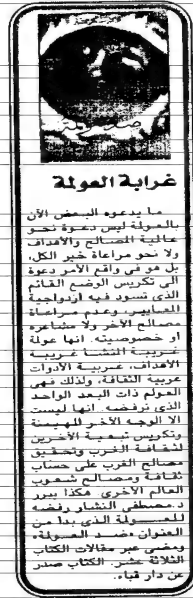 ضد العولمة
غرابة العولمة
ما يدعوه البعض الآن
بالعولة ليس دعوة نحو
عالمية المصالح والأهداف
ولا نحو مراعاة خير الكل،
بل هو فى واقع الأمر دعوة
الى تكريس الوضع القائم
الذى تسود فيه ازدواجية
المعايير، وعدم مراعاة
مصالح الآخر ولا مشاعره
أو خصوصيته. انها عولة
غربية المنشأ غربية
الأهداف، غربية الأدوات
غربية الثقافة، ولذلك فهى
العولم ذات البعد الواحد
الذى نرفضه. انها ليست
الا الوجه الآخر للهيمنة
وتكريس تبعية الآخرين
لثقافة الغرب وتحقيق
مصالح الغرب على حساب
ثقافة ومصالح شعوب
العالم الأخرى. هكذا يبرر
د. مصطفى النشار رفضه
للعولة الذى بدأ من
العنوان «ضد العولة»
ومضى عبر مقالات الكتاب
الثلاثة عشر. الكتاب صدر
عن دار قباء.